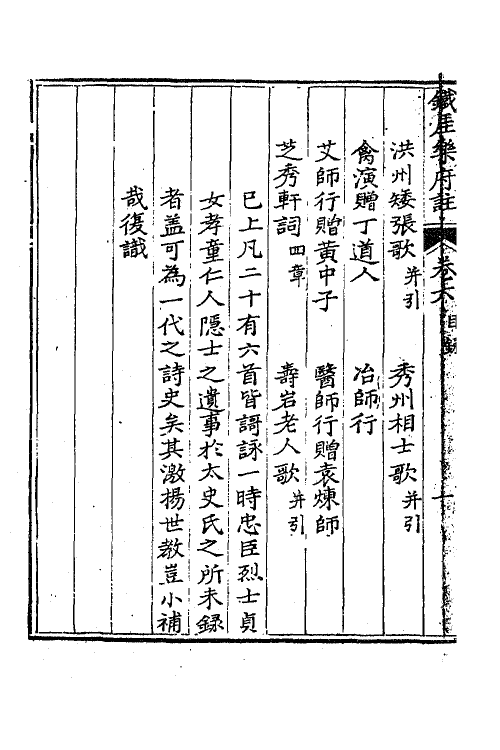 鐵厓樂府註 卷六 目錄 一
洪州矮張歌 并引 秀州相士歌 并引
禽演贈丁道人 冶師行
艾師行贈黃中子 醫師行贈袁煉師
芝秀軒詞 四章 壽岩老人歌 并引
已上凡二十有六首皆謌詠一時忠臣烈士貞
女孝童仁人隱士之遺事於太史氏之所未錄
者盖可為一代之詩史矣其激揚世教豈小補
哉復識